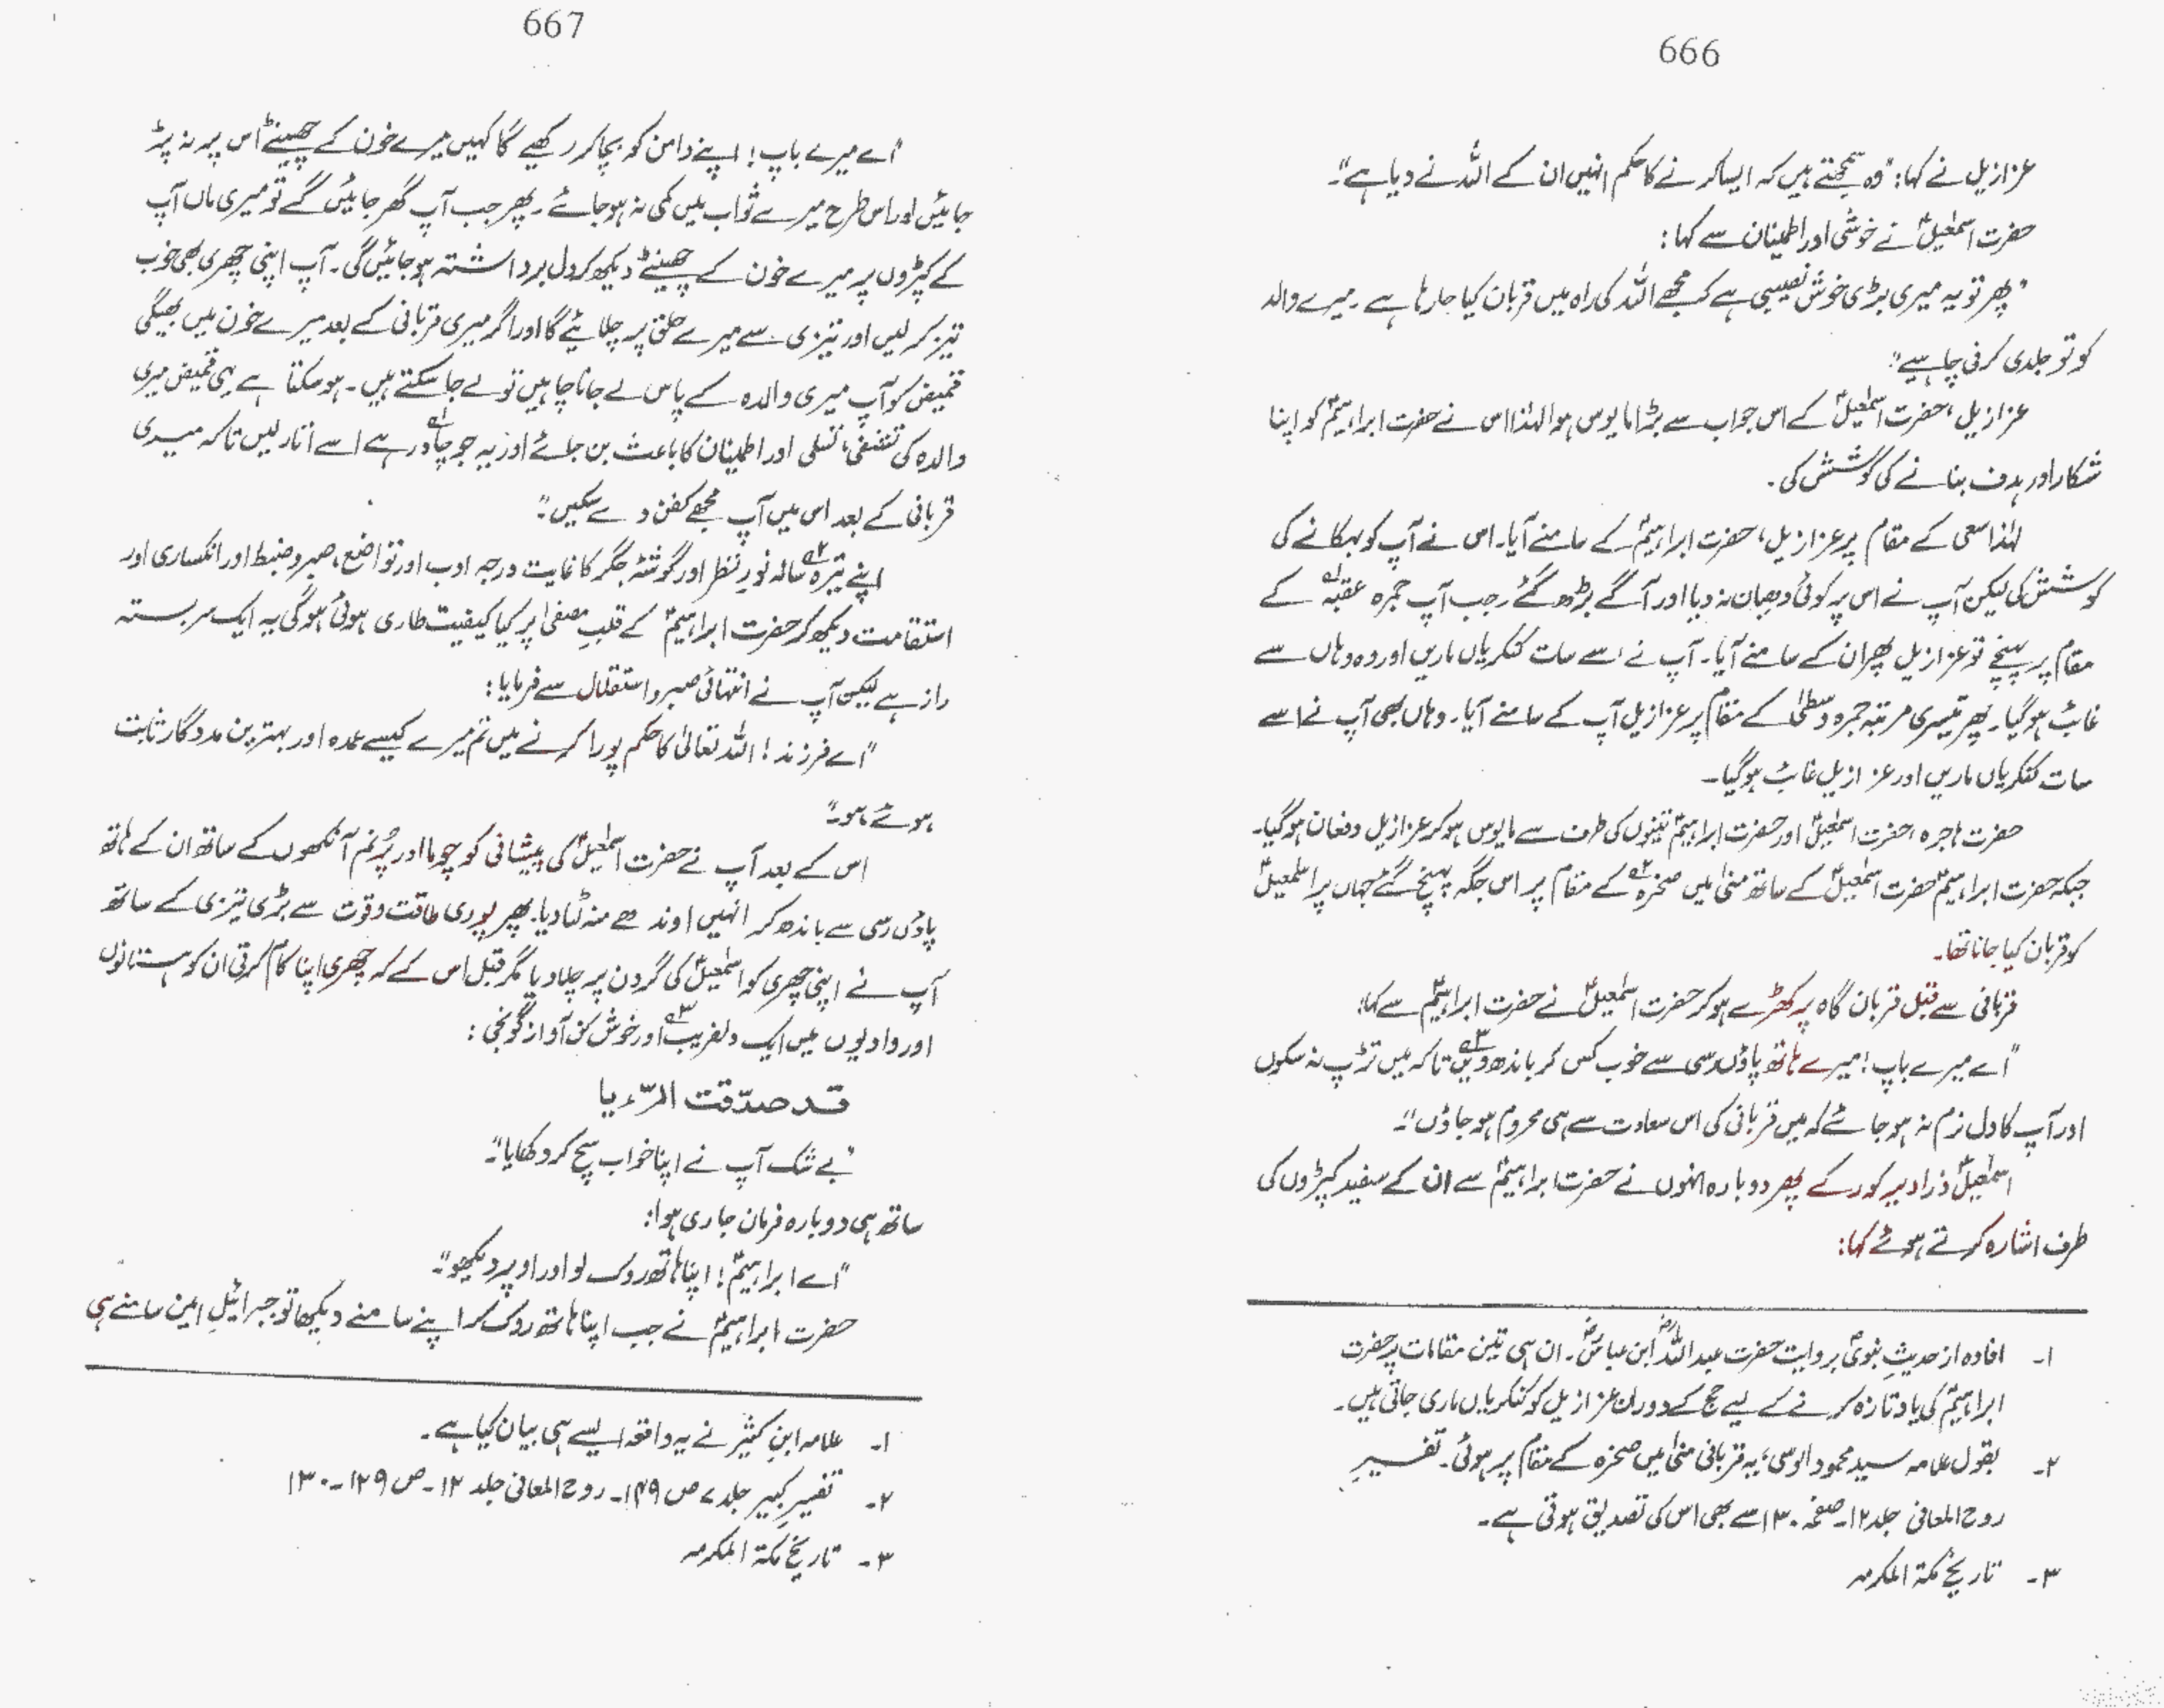 666
عزازیل نے کہا: "وہ سمجھتے ہیں کہ ایسا کرنے کا حکم انہیں ان کے اللہ نے دیا ہے"۔
حضرت اسمٰعیلؑ نے خوشی اور اطمینان سے کہا:
"پھر تو یہ میری بڑی خوش نصیبی ہے کہ مجھے اللہ کی راہ میں قربان کیا جا رہا ہے۔ میرے والد
کو تو جلدی کرنی چاہیے"۔
عزازیل، حضرت اسمٰعیلؑ کے اس جواب سے بڑا مایوس ہوا لہٰذا اس نے حضرت ابراہیمؑ کو اپنا
شکار اور ہدف بنانے کی کوشش کی۔
لہٰذا سعی کے مقام پر عزازیل، حضرت ابراہیمؑ کے سامنے آیا۔ اس نے آپ کو بہکانے کی
کوشش کی لیکن آپ نے اس پہ کوئی دھیان نہ دیا اور آگے بڑھ گئے۔ جب آپ جمرہ عقبہ۱؎ کے
مقام پر پہنچے تو عزازیل پھر ان کے سامنے آیا۔ آپ نے اسے سات کنکریاں ماریں اور وہ وہاں سے
غائب ہو گیا۔ پھر تیسری مرتبہ جمرہ وسطیٰ کے مقام پر عزازیل آپ کے سامنے آیا۔ وہاں بھی آپ نے اسے
سات کنکریاں ماریں اور عزازیل غائب ہو گیا۔
حضرت ہاجرہ، حضرت اسمٰعیلؑ اور حضرت ابراہیمؑ تینوں کی طرف سے مایوس ہو کر عزازیل دفعان ہو گیا۔
جبکہ حضرت ابراہیمؑ حضرت اسمٰعیلؑ کے ساتھ منیٰ میں صخرہ۲؎ کے مقام پر اس جگہ پہنچ گئے جہاں پر اسمٰعیلؑ
کو قربان کیا جانا تھا۔
قربانی سے قبل قربان گاہ پہ کھڑے ہو کر حضرت اسمٰعیلؑ نے حضرت ابراہیمؑ سے کہا:
"اے میرے باپ! میرے ہاتھ پاؤں رسی سے خوب کس کر باندھ دیں۳؎ تاکہ میں تڑپ نہ سکوں
اور آپ کا دل نرم نہ ہو جائے کہ میں قربانی کی اس سعادت سے ہی محروم ہو جاؤں"۔
اسمٰعیلؑ ذرا دیر کو رکے پھر دوبارہ انہوں نے حضرت ابراہیمؑ سے ان کے سفید کپڑوں کی
طرف اشارہ کرتے ہوئے کہا:
۱۔ افادہ از حدیثِ نبویؐ بروایت حضرت عبداللہؓ ابن عباسؓ۔ ان ہی تین مقامات پر حضرت
ابراہیمؑ کی یاد تازہ کرنے کے لیے حج کے دوران عزازیل کو کنکریاں ماری جاتی ہیں۔
۲۔ بقول علامہ سید محمود آلوسی، یہ قربانی منیٰ میں صخرہ کے مقام پر ہوئی۔ تفسیرِ
روح المعانی جلد ۱۲۔ صفحہ ۱۳۰ سے بھی اس کی تصدیق ہوتی ہے۔
۳۔ تاریخ مکۃ المکرمہ
667
"اے میرے باپ! اپنے دامن کو بچا کر رکھیے گا کہیں میرے خون کے چھینٹے اس پہ نہ پڑ
جائیں اور اس طرح میرے ثواب میں کمی نہ ہو جائے۔ پھر جب آپ گھر جائیں گے تو میری ماں آپ
کے کپڑوں پر میرے خون کے چھینٹے دیکھ کر دل برداشتہ ہو جائیں گی۔ آپ اپنی چھری بھی خوب
تیز کر لیں اور تیزی سے میرے حلق پر چلائیے گا اور اگر میری قربانی کے بعد میرے خون میں بھیگی
قمیض کو آپ میری والدہ کے پاس لے جانا چاہیں تو لے جا سکتے ہیں۔ ہو سکتا ہے یہی قمیض میری
والدہ کی تشفی، تسلی اور اطمینان کا باعث بن جائے اور یہ جو چادر۱؎ ہے اسے اتار لیں تاکہ میری
قربانی کے بعد اس میں آپ مجھے کفن دے سکیں"۔
اپنے تیرہ۲؎ سالہ نورِ نظر اور گوشۂ جگر کا غایت درجہ ادب اور تواضع، صبر و ضبط اور انکساری اور
استقامت دیکھ کر حضرت ابراہیمؑ کے قلبِ مصفیٰ پر کیا کیفیت طاری ہوئی ہو گی یہ ایک سربستہ
راز ہے لیکن آپ نے انتہائی صبر و استقلال سے فرمایا:
"اے فرزند! اللہ تعالیٰ کا حکم پورا کرنے میں تم میرے کیسے عمدہ اور بہترین مددگار ثابت
ہوئے ہو"۔
اس کے بعد آپ نے حضرت اسمٰعیلؑ کی پیشانی کو چوما اور پُرنم آنکھوں کے ساتھ ان کے ہاتھ
پاؤں رسی سے باندھ کر انہیں اوندھے منہ لٹا دیا۔ پھر پوری طاقت و قوت سے بڑی تیزی کے ساتھ
آپ نے اپنی چھری کو اسمٰعیلؑ کی گردن پر چلا دیا مگر قبل اس کے کہ چھری اپنا کام کرتی ان کوہستانوں
اور وادیوں میں ایک دلفریب۳؎ اور خوش کن آواز گونجی:
قد صدّقت الرّءیا
"بے شک آپ نے اپنا خواب سچ کر دکھایا"۔
ساتھ ہی دوبارہ فرمان جاری ہوا:
"اے ابراہیمؑ! اپنا ہاتھ روک لو اور اوپر دیکھو"۔
حضرت ابراہیمؑ نے جب اپنا ہاتھ روک کر اپنے سامنے دیکھا تو جبرائیلِ امین سامنے ہی
۱۔ علامہ ابنِ کثیر نے یہ واقعہ ایسے ہی بیان کیا ہے۔
۲۔ تفسیرِ کبیر جلد ۷ ص ۱۴۹۔ روح المعانی جلد ۱۲۔ ص ۱۲۹۔۱۳۰
۳۔ تاریخ مکۃ المکرمہ